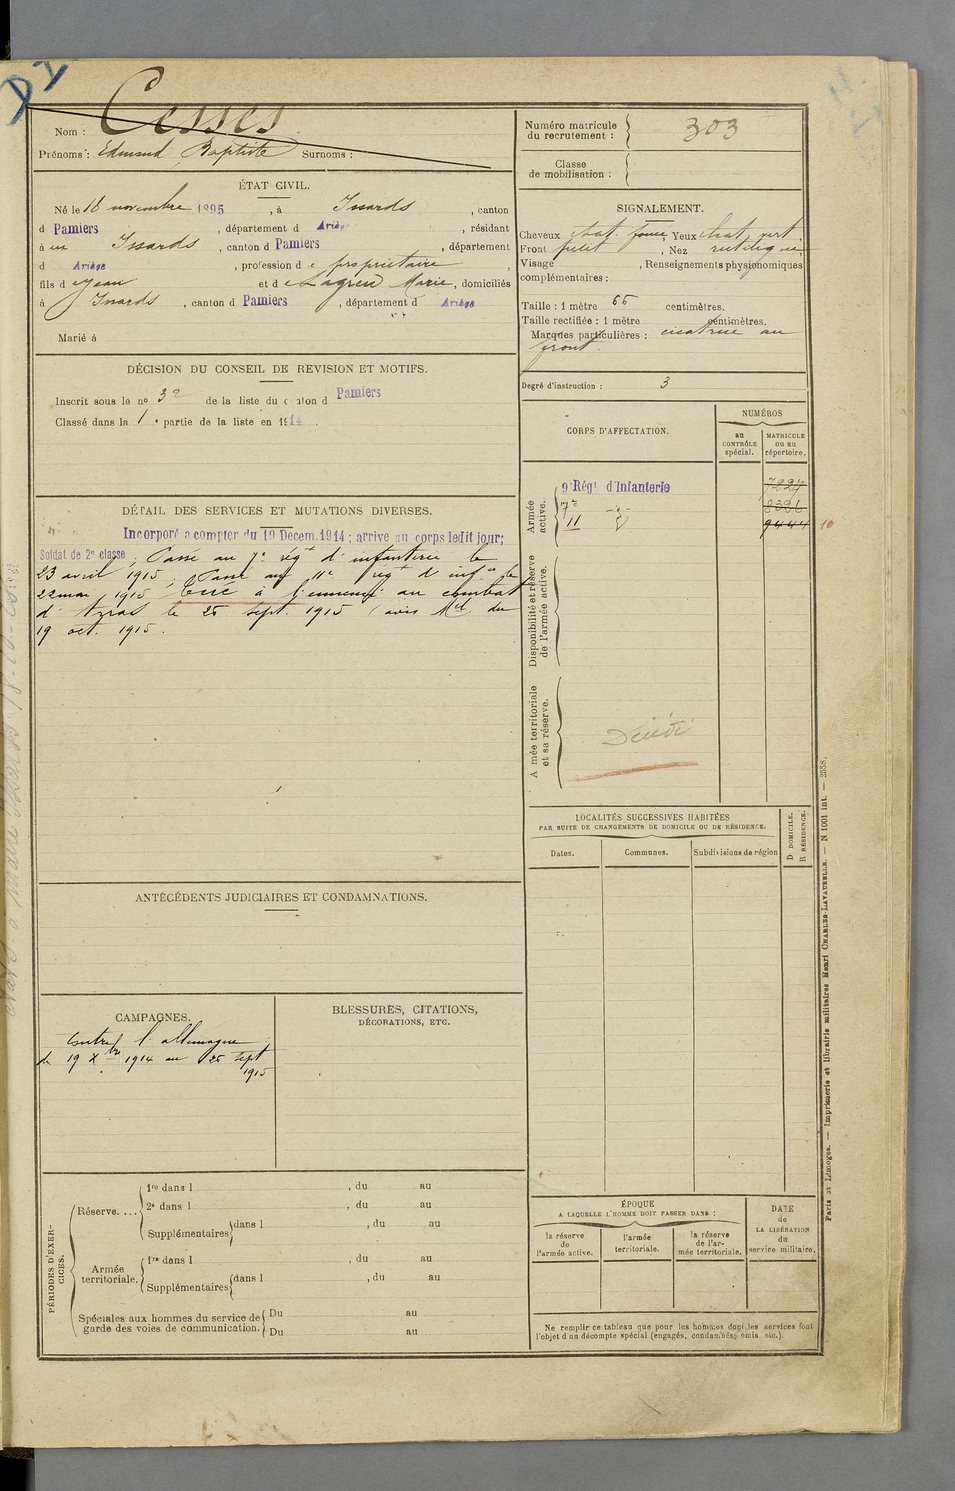 Nom : Cesses
Prénoms : Edmond Baptiste Surnoms :
Numéro matricule du recrutement : 303
Classe de mobilisation :
ÉTAT CIVIL.
Né le 18 novembre 1895, à Issards, canton
d Pamiers, département d Ariège, résidant
à Issards, canton d Pamiers, département
d Ariège, profession d e propriétaire,
fils d e Jean et d e Lagreu Marie, domiciliés
à Issards, canton d Pamiers, département d Ariège
Marié à
SIGNALEMENT.
Cheveux chat. foncé, Yeux chat. vert.
Front petit, Nez rectiligne,
Visage , Renseignements physionomiques
complémentaires :
Taille : 1 mètre 66 centimètres.
Taille rectifiée : 1 mètre centimètres.
Marques particulières : cicatrice au
front.
Degré d'instruction : 3
DÉCISION DU CONSEIL DE REVISION ET MOTIFS.
Inscrit sous le no 32 de la liste du canton d Pamiers
Classé dans la 1 e partie de la liste en 1914.
CORPS D'AFFECTATION.
NUMÉROS
au CONTRÔLE spécial.
MATRICULE OU AU répertoire.
Armée active.
9e Régt d'Infanterie 7227
7e 8396
11 9444 10
Disponibilité et réserve de l'armée active.
Armée territoriale et sa réserve.
Décédé
DÉTAIL DES SERVICES ET MUTATIONS DIVERSES.
Incorporé a compter du 19 Decem. 1914 ; arrive au corps ledit jour;
Soldat de 2e classe ; Passé au 7e régt d'infanterie le
23 avril 1915 ; Passé au 11e régt d'infie le
22 mai 1915. Tué à l'ennemi au combat
d'Arras le 25 sept. 1915 (avis Mel du
19 oct. 1915.
LOCALITÉS SUCCESSIVES HABITÉES
PAR SUITE DE CHANGEMENTS DE DOMICILE OU DE RÉSIDENCE.
Dates. Communes. Subdivisions de région
D DOMICILE.
R RÉSIDENCE.
ANTÉCÉDENTS JUDICIAIRES ET CONDAMNATIONS.
CAMPAGNES.
Contre l'Allemagne
du 19 Xbre 1914 au 25 sept
1915
BLESSURES, CITATIONS,
DÉCORATIONS, ETC.
PÉRIODES D'EXERCICES.
Réserve....
1re dans l , du au
2e dans l , du au
Supplémentaires dans l , du au
Armée territoriale.
1re dans l , du au
Supplémentaires dans l , du au
Spéciales aux hommes du service de garde des voies de communication.
Du au
Du au
ÉPOQUE
A LAQUELLE L'HOMME DOIT PASSER DANS :
la réserve de l'armée active.
l'armée territoriale.
la réserve de l'armée territoriale.
DATE de LA LIBÉRATION du service militaire.
Ne remplir ce tableau que pour les hommes dont les services font
l'objet d'un décompte spécial (engagés, condamnés, omis, etc.).
Paris et Limoges. — Imprimerie et librairie militaires Henri CHARLES-LAVAUZELLE. — N 1001 int. — 2558.